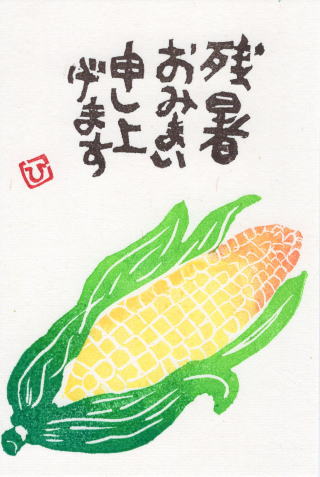 残暑
おみまい
申し上
げます
ひ